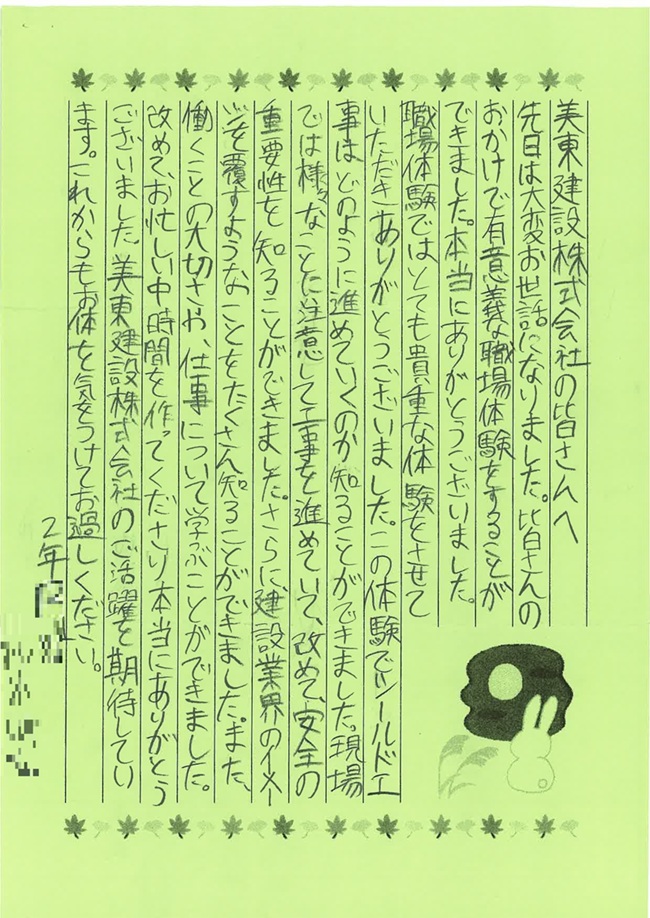 美東建設株式会社の皆さんへ
先日は大変お世話になりました。皆さんの
おかげで有意義な職場体験をすることが
できました。本当にありがとうございました。
職場体験ではとても貴重な体験をさせて
いただきありがとうございました。この体験でシールド工
事はどのように進めていくのか知ることができました。現場
では様々なことに注意して工事を進めていて、改めて、安全の
重要性を知ることができました。さらに、建設業界のイメー
ジを覆すようなことをたくさん知ることができました。また、
働くことの大切さや、仕事について学ぶことができました。
改めて、お忙しい中時間を作ってくださり本当にありがとう
ございました。美東建設株式会社のご活躍を期待してい
ます。これからもお体を気をつけてお過しください。
2年